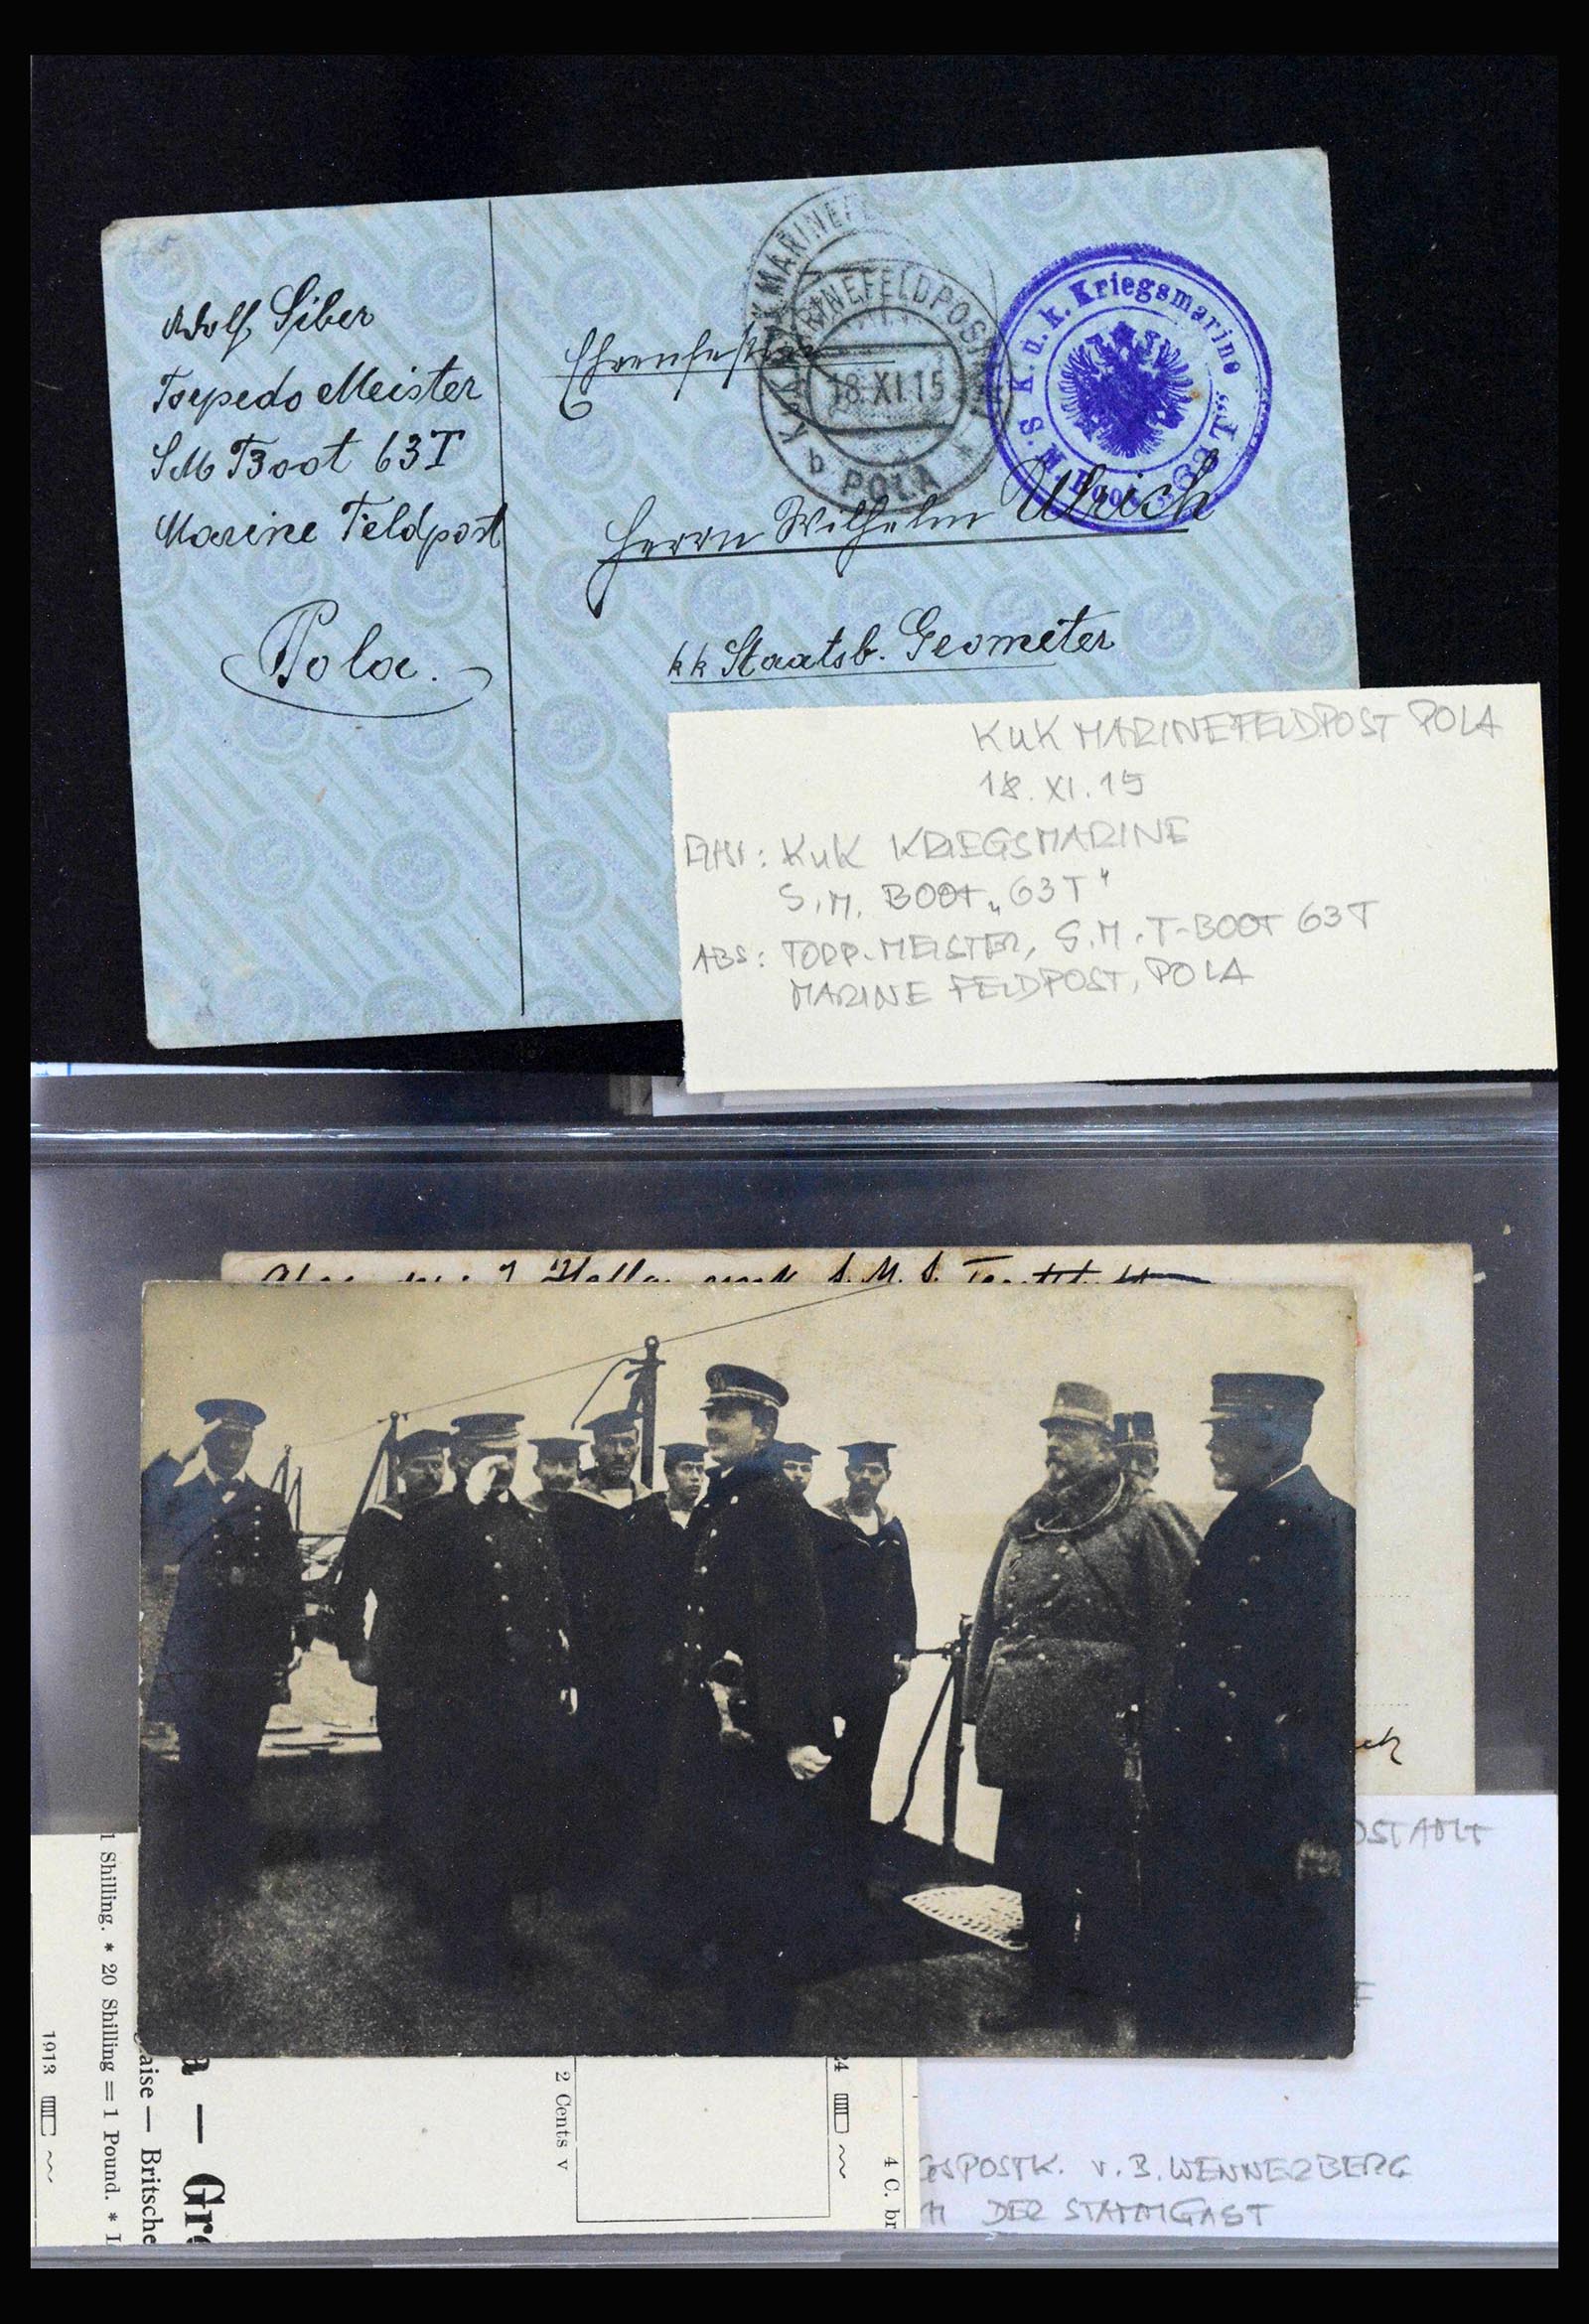 Adolf Siber
Torpedo Meister
SM Boot 63T
Marine Feldpost
Pola.
K.u.K. MARINEFELDPOST
18.XI.15
b POLA *
K. u. k. Kriegsmarine
S. M. Boot „63 T“
Herrn Wilhelm Ulrich
kk Staatsb. Geometer
KUK MARINEFELDPOST POLA
18.XI.15
KUK KRIEGSMARINE
S.M. BOOT „63T"
ABS: TORP.-MEISTER, S.M.T-BOOT 63T
MARINE FELDPOST, POLA
S. M. S.
1 Shilling. * 20 Shilling = 1 Pound. *
1913
aise — Britsche
a — Gr
2 Cents v
24
4 C. br
GSPOSTK. v. B. WENNERBERG
DER STAMMGAST